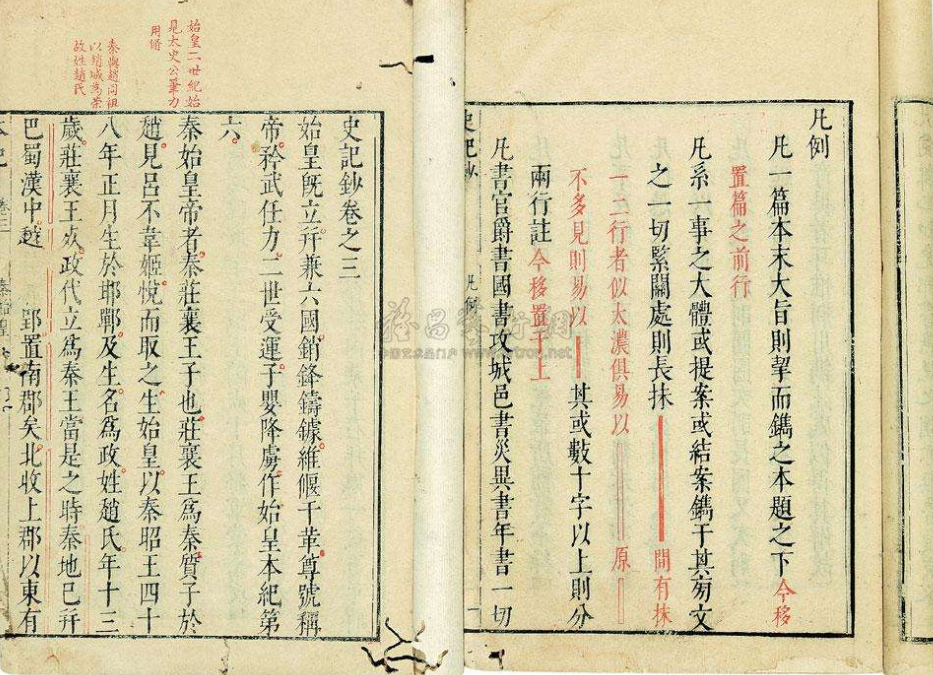 凡例
凡一篇本末大旨則挈而鐫之本題之下今移
置篇之前行
凡系一事之大體或提案或結案鐫于其旁文
之一切緊關處則長抹 間有抹
一二行者似太濃俱易以 原
不多見則易以 其或數十字以上則分
兩行註今移置于上
凡書官爵書國書攻城邑書災異書年書一切
史記鈔
凡例
一
始皇二世紀始
見太史公筆力
用脩
秦與趙同祖
以趙城為榮
故姓趙氏
史記鈔卷之三
始皇既立并兼六國銷鋒鑄鐻維偃干革尊號稱
帝矜武任力二世受運子嬰降虜作始皇本紀第
六
秦始皇帝者秦莊襄王子也莊襄王為秦質子於
趙見呂不韋姬悅而取之生始皇以秦昭王四十
八年正月生於邯鄲及生名為政姓趙氏年十三
歲莊襄王死政代立為秦王當是之時秦地已并
巴蜀漢中越 郢置南郡矣北收上郡以東有
本紀
卷三
秦始皇